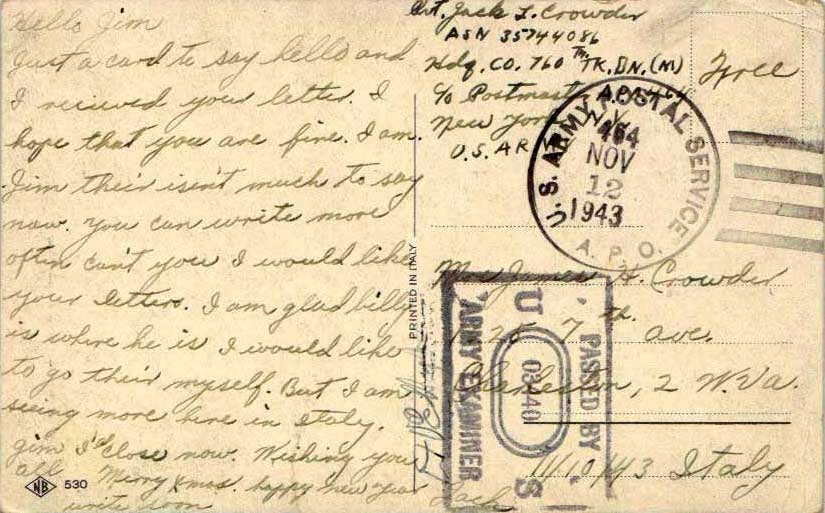 Hello Jim
Just a card to say hello and
I recieved your letter. I
hope that you are fine. I am.
Jim their isn't much to say
now. you can write more
often can't you I would like
your letters. I am glad billy
is where he is I would like
to go their myself. But I am
seeing more here in Italy.
Jim I'll close now. Wishing you
all Merry Xmas. happy new year
write soon
Jack
NB 530
PRINTED IN ITALY
Pvt. Jack L. Crowder
ASN 35744086
Hdq. CO. 760 TH TK. BN. (M)
c/o Postmaster A.P.O. 464
New York N.Y.
U.S. ARMY
Free
U.S. ARMY POSTAL SERVICE
464
NOV
12
1943
A. P. O.
Mr James H. Crowder
1725 7th ave.
Charleston, 2 W. Va.
11/10/43 Italy
PASSED BY
U S
03440
ARMY EXAMINER